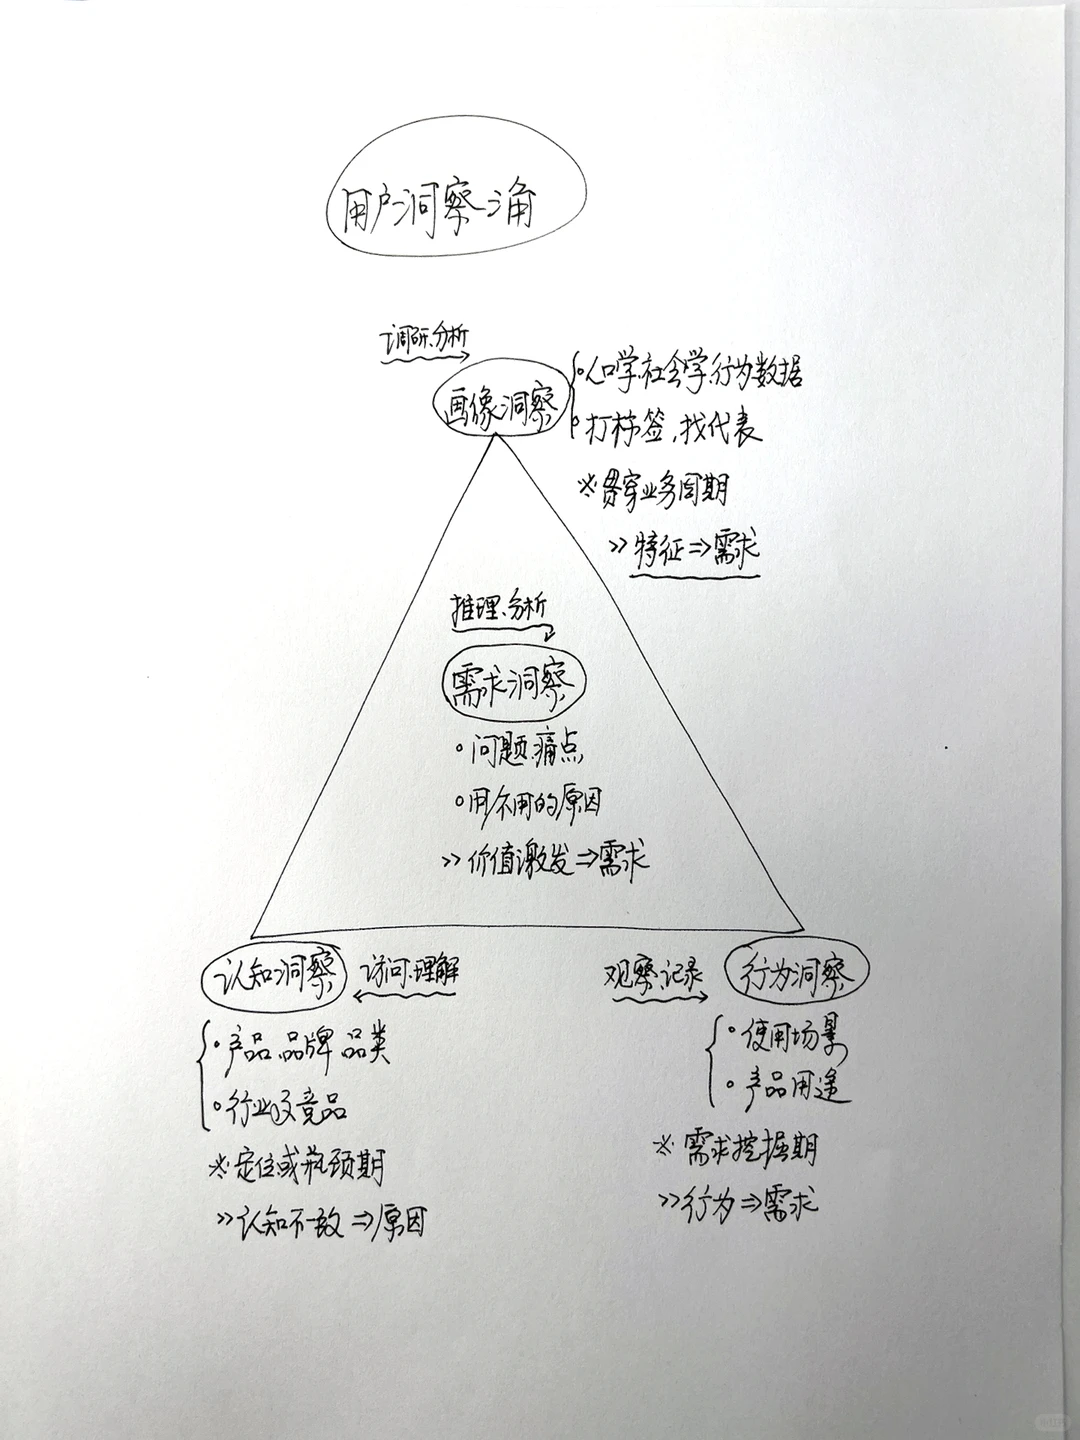 用户洞察三角
调研、分析
画像洞察
人口学、社会学、行为数据
打标签、找代表
※贯穿业务周期
>>特征⇒需求
推理、分析
需求洞察
问题、痛点
用/不用的原因
>>价值激发⇒需求
认知洞察
访问、理解
观察、记录
行为洞察
产品、品牌、品类
行业及竞品
※定位或瓶颈期
>>认知不一致⇒原因
使用场景
产品用途
※需求挖掘期
>>行为⇒需求